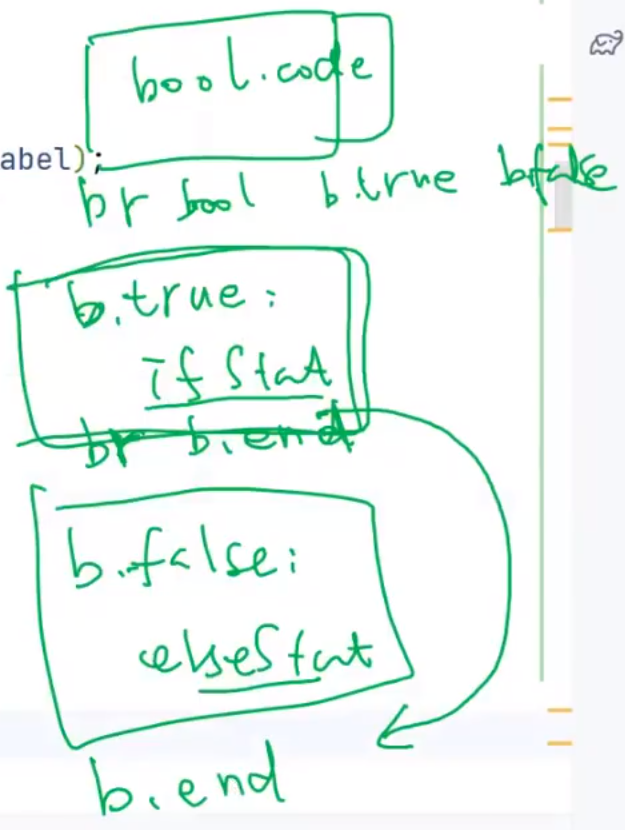 bool.code
abel);
br bool b.true b.false
b.true:
if Stat
br b.end
b.false:
elseStat
b.end